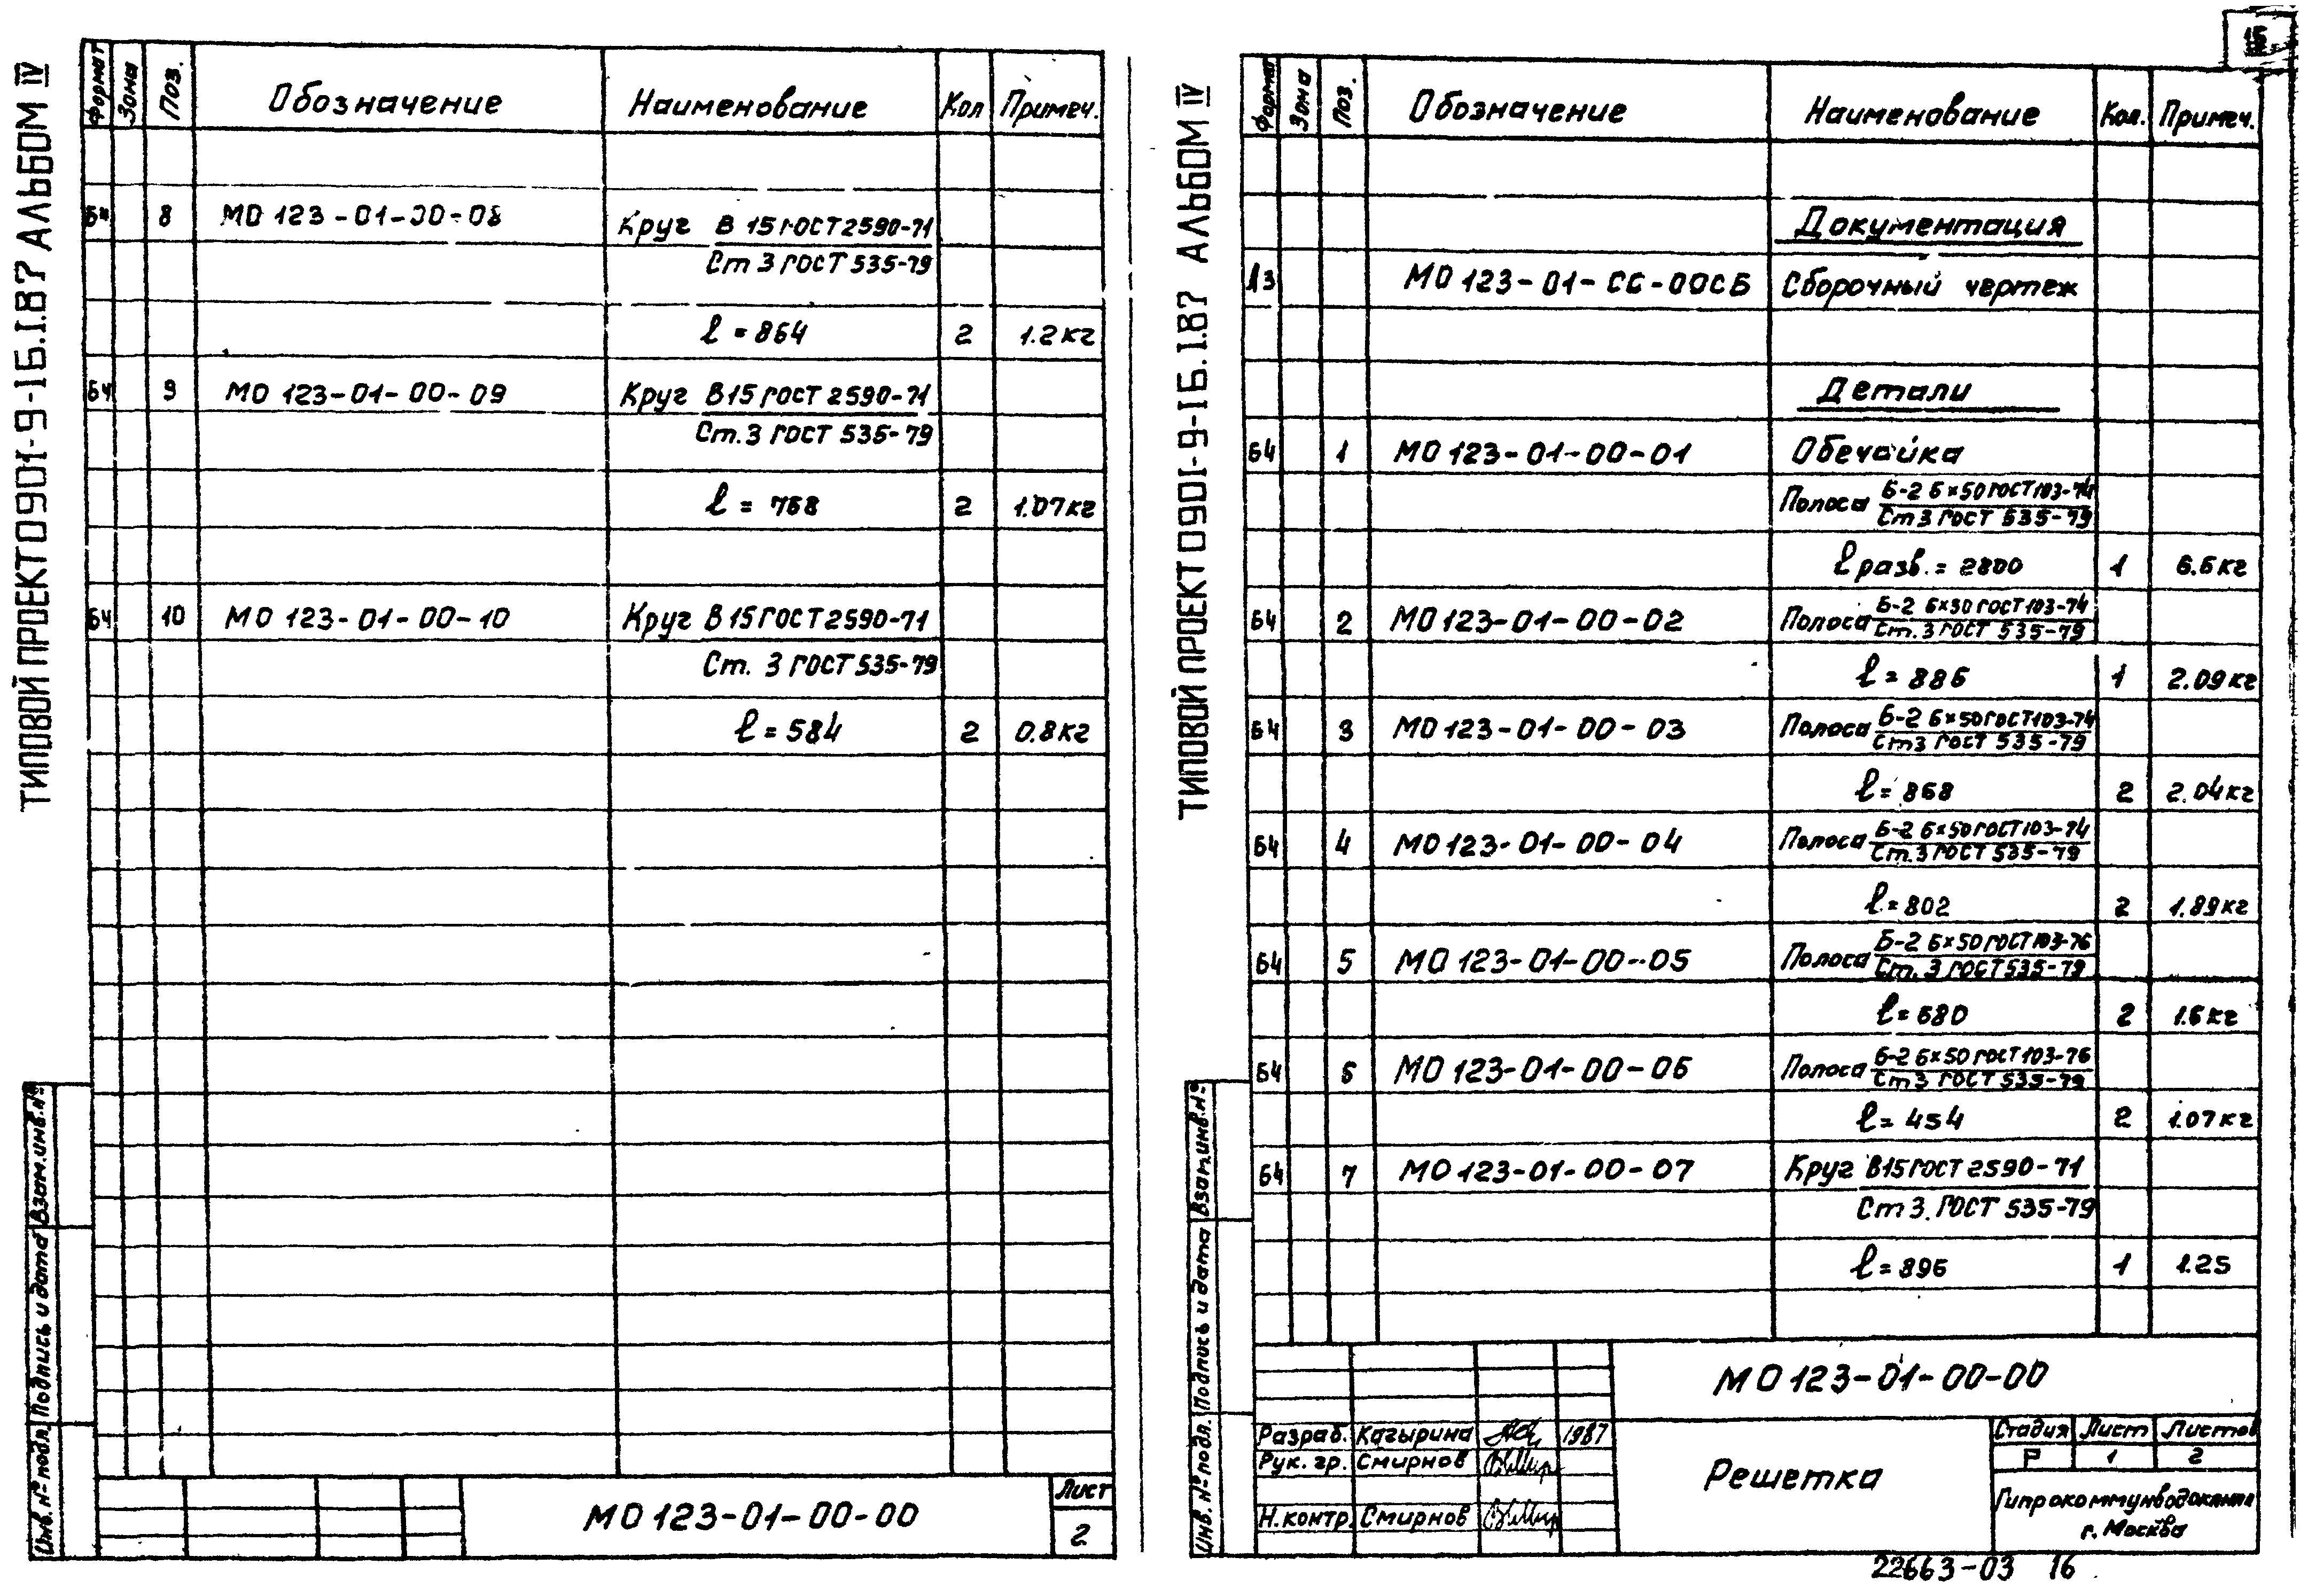 ТИПОВОЙ ПРОЕКТ 0901-9-16.I.87 АЛЬБОМ IV
Формат Зона Поз. Обозначение Наименование Кол Примеч.
Б4 8 МО 123-01-00-08 Круг В 15 ГОСТ 2590-71
Ст 3 ГОСТ 535-79
ℓ = 864 2 1.2кг
Б4 9 МО 123-01-00-09 Круг В15 ГОСТ 2590-71
Ст.3 ГОСТ 535-79
ℓ = 768 2 1.07кг
Б4 10 МО 123-01-00-10 Круг В15 ГОСТ 2590-71
Ст. 3 ГОСТ 535-79
ℓ = 584 2 0.8кг
Взам.инв.№
Подпись и дата
Инв.№подл.
МО 123-01-00-00
Лист
2
ТИПОВОЙ ПРОЕКТ 0901-9-16.I.87 АЛЬБОМ IV
Формат Зона Поз. Обозначение Наименование Кол. Примеч.
Документация
А3 МО 123-01-СС-00СБ Сборочный чертеж
Детали
Б4 1 МО 123-01-00-01 Обечайка
Полоса Б-2 6×50 ГОСТ 103-74
Ст 3 ГОСТ 535-79
ℓ разв. = 2800 1 6.6кг
Б4 2 МО 123-01-00-02 Полоса Б-2 6×50 ГОСТ 103-74
Ст. 3 ГОСТ 535-79
ℓ = 886 1 2.09кг
Б4 3 МО 123-01-00-03 Полоса Б-2 6×50 ГОСТ 103-74
Ст3 ГОСТ 535-79
ℓ = 868 2 2.04кг
Б4 4 МО 123-01-00-04 Полоса Б-2 6×50 ГОСТ 103-74
Ст.3 ГОСТ 535-79
ℓ = 802 2 1.89кг
Б4 5 МО 123-01-00-05 Полоса Б-2 6×50 ГОСТ 103-76
Ст. 3 ГОСТ 535-79
ℓ = 680 2 1.6кг
Б4 6 МО 123-01-00-06 Полоса Б-2 6×50 ГОСТ 103-76
Ст 3 ГОСТ 535-79
ℓ = 454 2 1.07кг
Б4 7 МО 123-01-00-07 Круг В15 ГОСТ 2590-71
Ст 3. ГОСТ 535-79
ℓ = 896 1 1.25
Взам.инв.№
Подпись и дата
Инв.№подл.
МО 123-01-00-00
Разраб. Кагырина 1987
Рук. гр. Смирнов
Н.контр. Смирнов
Решетка
Стадия Лист Листов
Р 1 2
Гипрокоммунводоканал
г. Москва
22663-03 16